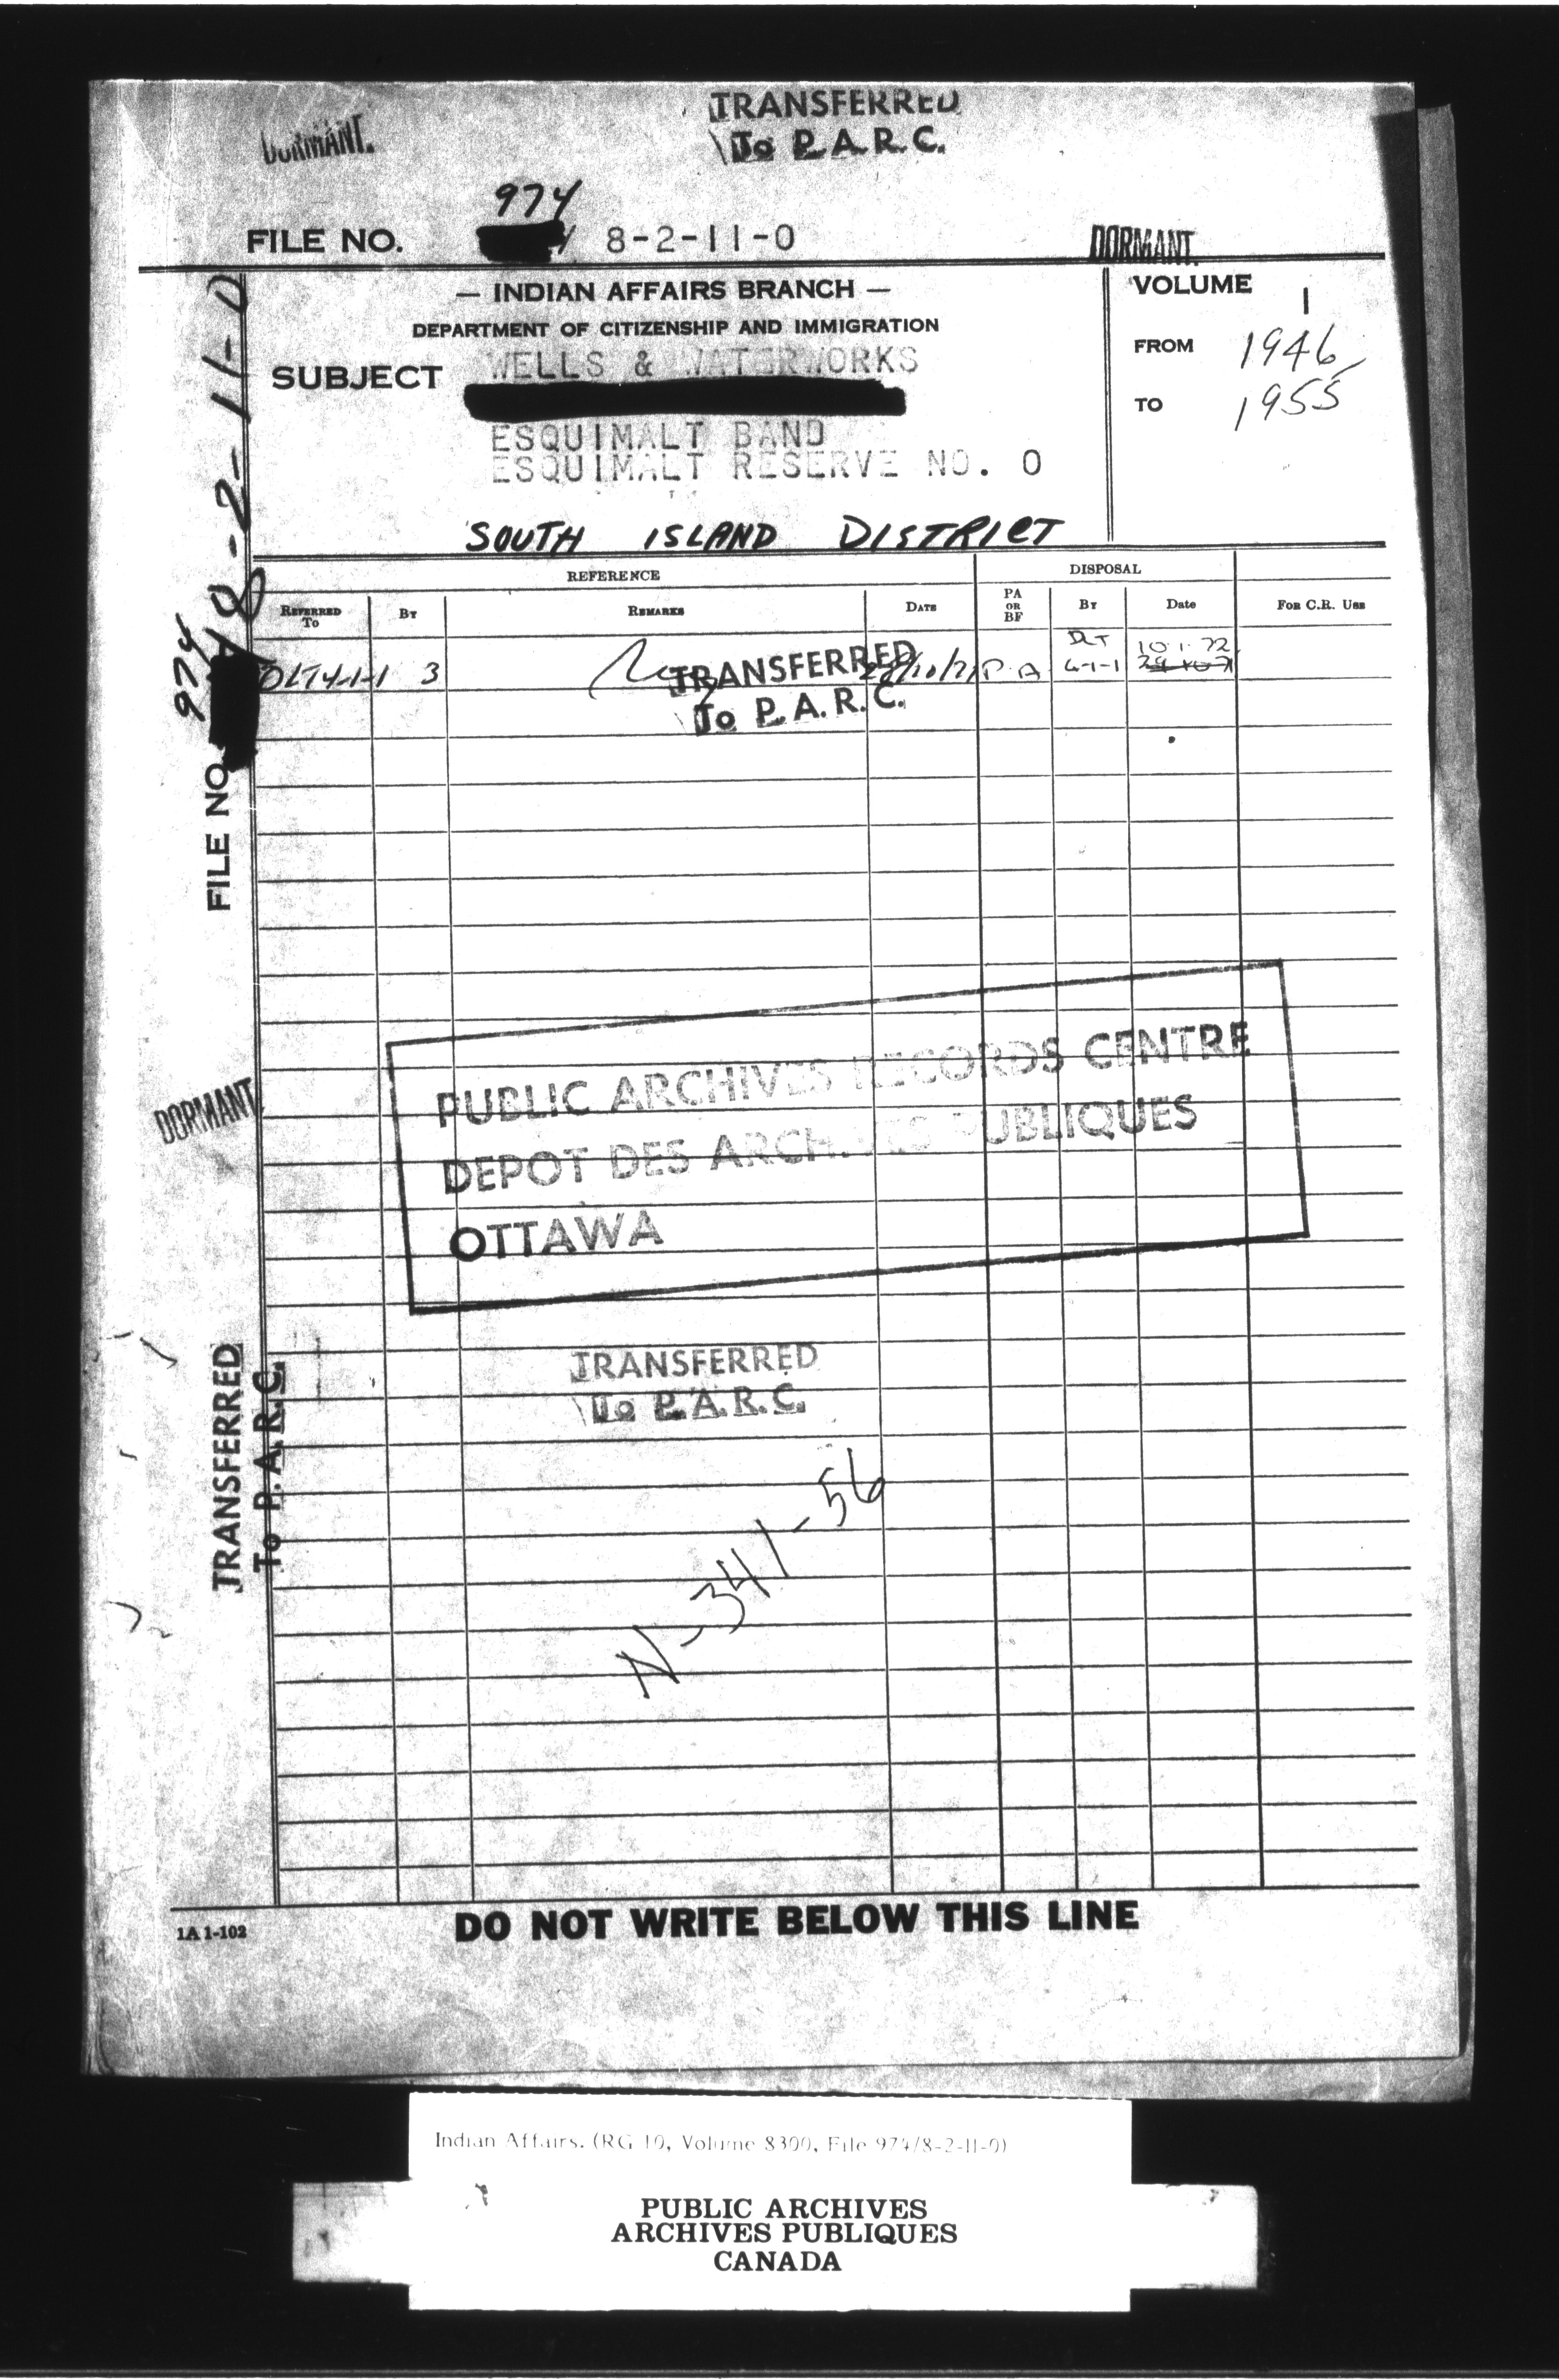 TRANSFERRED
To P.A.R.C.
DORMANT.
974
FILE NO. 8-2-11-0
DORMANT.
— INDIAN AFFAIRS BRANCH —
DEPARTMENT OF CITIZENSHIP AND IMMIGRATION
SUBJECT WELLS & WATERWORKS
ESQUIMALT BAND
ESQUIMALT RESERVE NO. 0
SOUTH ISLAND DISTRICT
VOLUME 1
FROM 1946
TO 1955
FILE NO. 974 8-2-11-0
REFERENCE
DISPOSAL
REFERRED To
BY
REMARKS
DATE
PA OR BF
BY
Date
FOR C.R. USE
3
TRANSFERRED
To P.A.R.C.
P.A
DLT
10.1.72
DORMANT
PUBLIC ARCHIVES RECORDS CENTRE
DEPOT DES ARCHIVES PUBLIQUES
OTTAWA
TRANSFERRED
To P.A.R.C.
TRANSFERRED
To P.A.R.C.
N-341-56
1A 1-102
DO NOT WRITE BELOW THIS LINE
Indian Affairs. (RG 10, Volume 8300, File 974/8-2-11-0)
PUBLIC ARCHIVES
ARCHIVES PUBLIQUES
CANADA